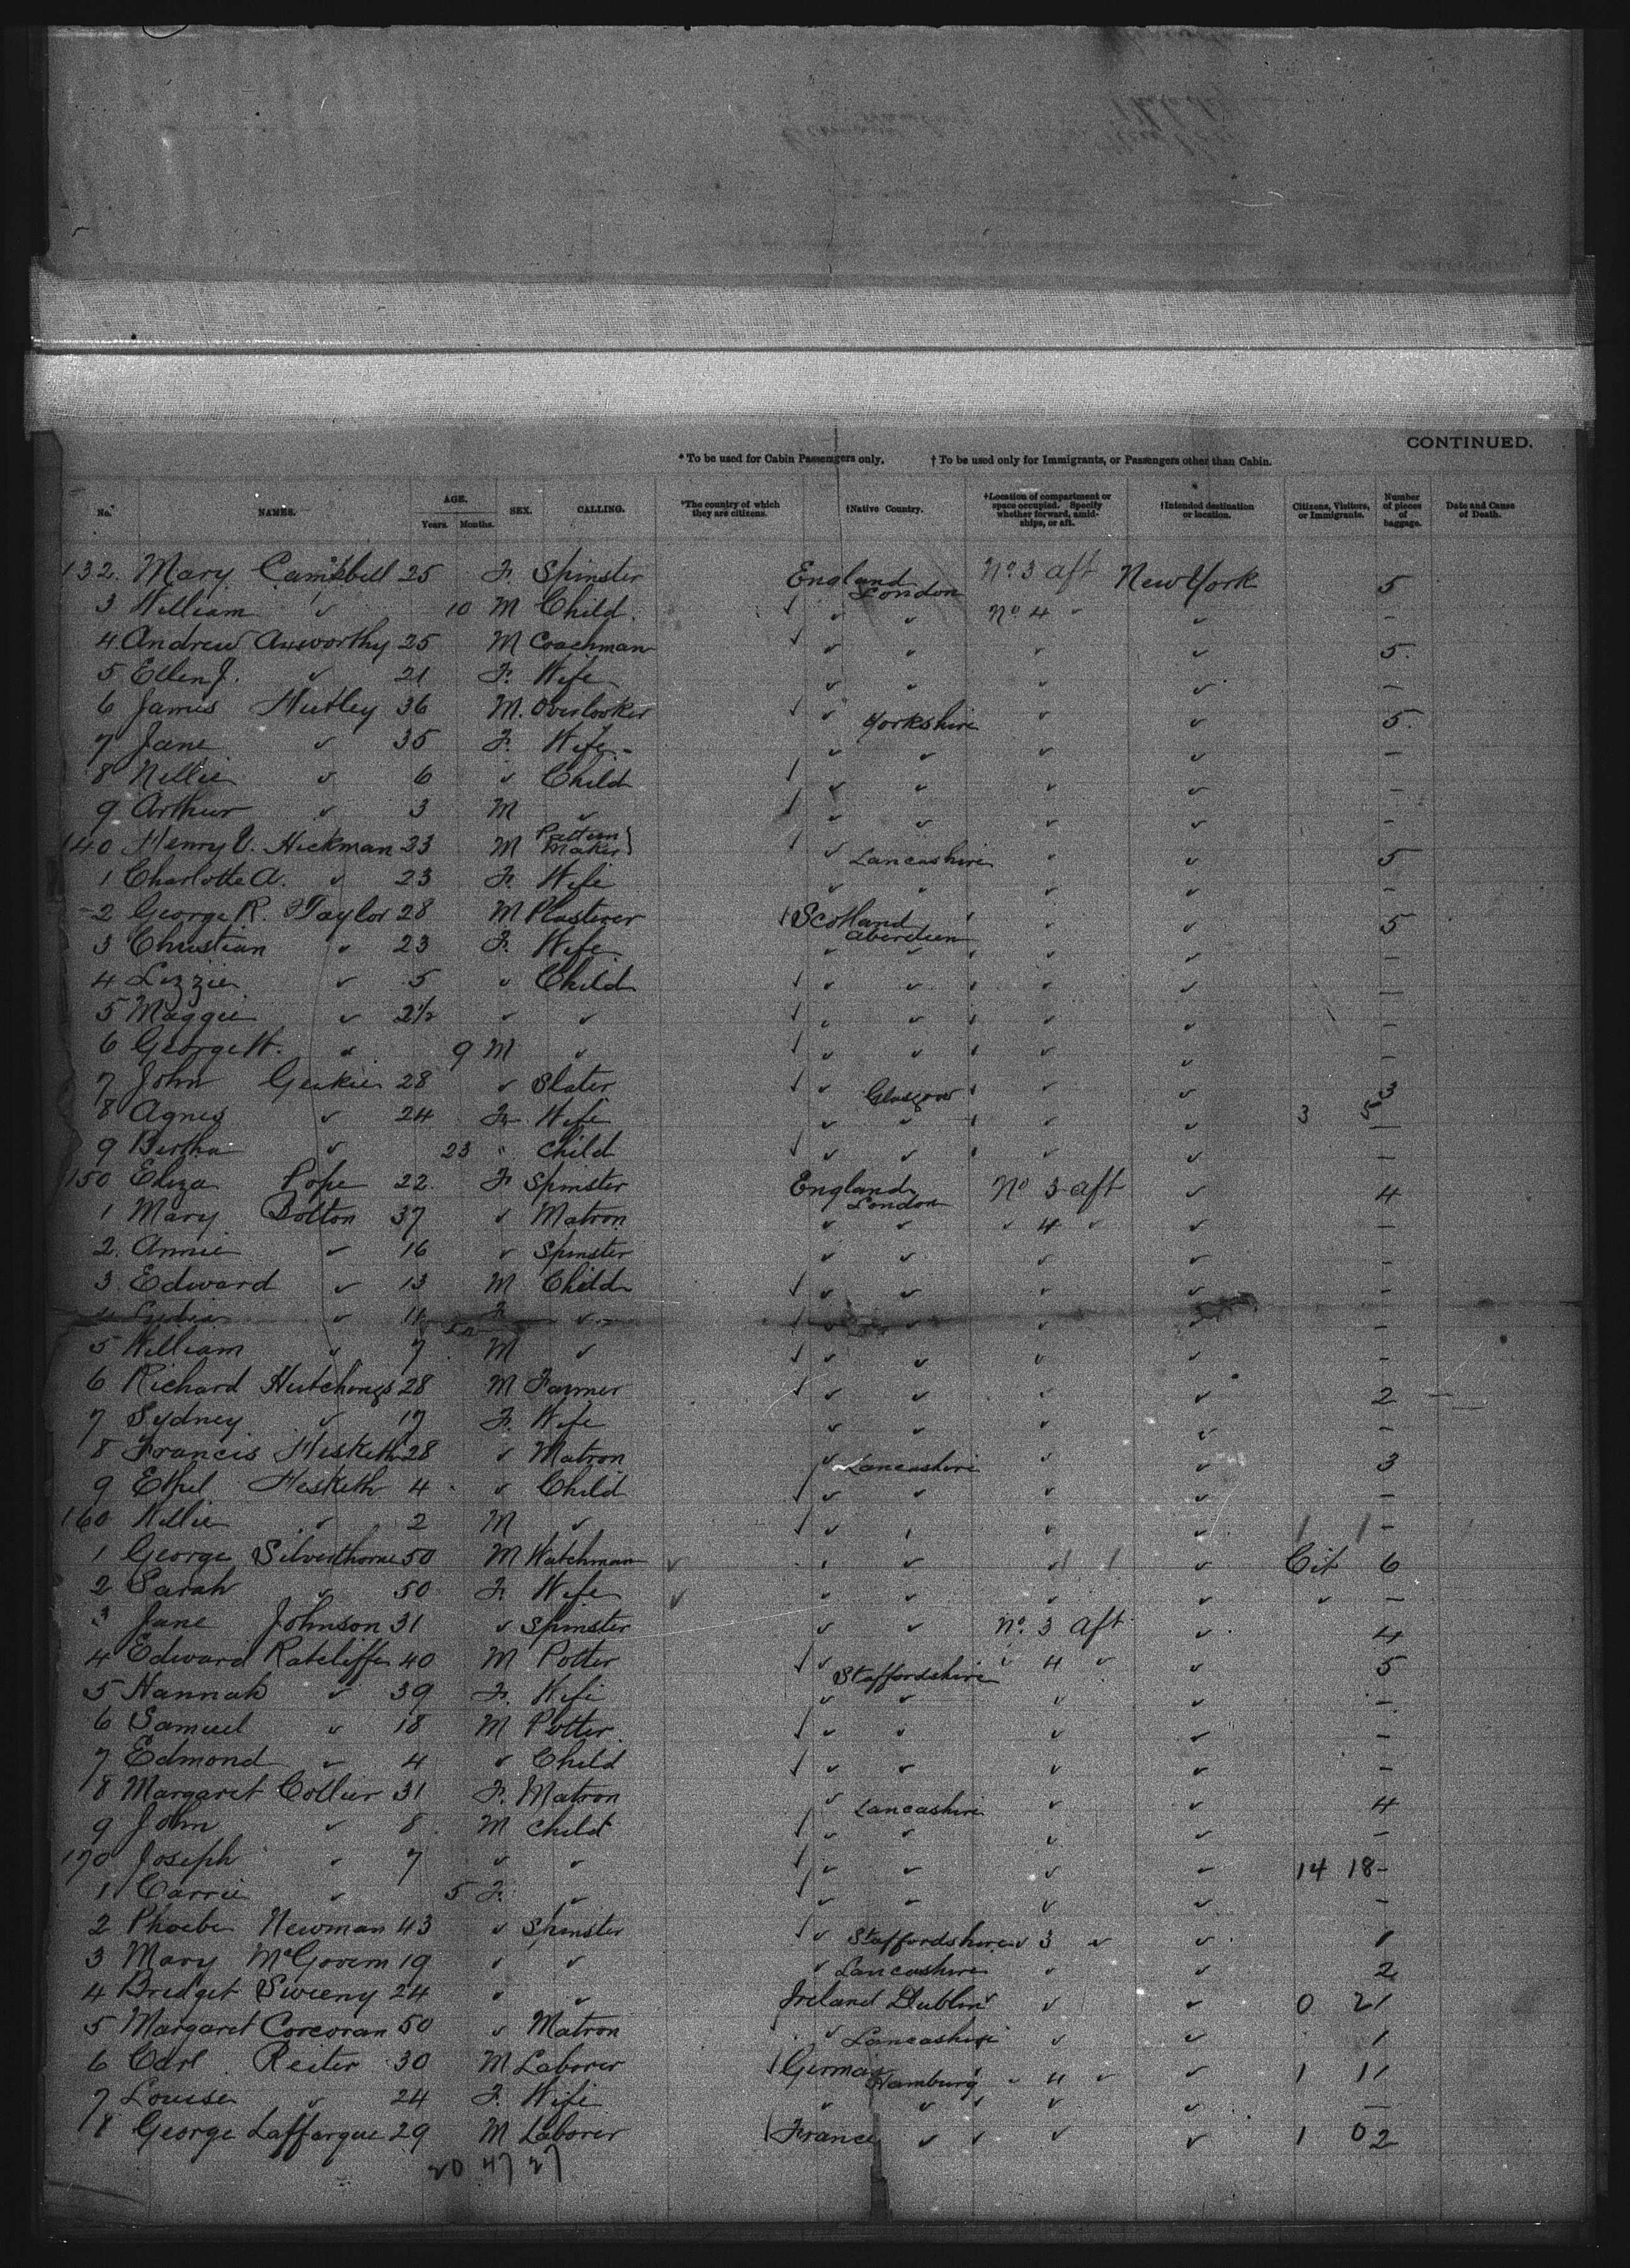 CONTINUED.
* To be used for Cabin Passengers only. † To be used only for Immigrants, or Passengers other than Cabin.
No. NAMES. AGE. Years. Months. SEX. CALLING. *The country of which they are citizens. †Native Country. †Location of compartment or space occupied. Specify whether forward, amidships, or aft. †Intended destination or location. Citizens, Visitors, or Immigrants. Number of pieces of baggage. Date and Cause of Death.
132. Mary Campbell 25 F. Spinster England London No. 3 aft New York 5
3 William " 10 M Child. " " No 4 " " -
4 Andrew Axworthy 25 M Coachman " " " " 5.
5 Ellen J. " 21 F. Wife " " " " -
6 James Hutley 36 M. Overlooker " Yorkshire " " 5.
7 Jane " 35 F. Wife " " " " -
8 Nellie " 6 " Child " " " " -
9 Arthur " 3 M " " " " " -
140 Henry V. Hickman 23 M Pattern Maker " Lancashire " " 5
1 Charlotte A. " 23 F. Wife " " " " -
2 George R. Taylor 28 M Plasterer Scotland Aberdeen " " 5
3 Christian " 23 F. Wife " " " " -
4 Lizzie " 5 " Child " " " " -
5 Maggie " 2½ " " " " " " -
6 George H. " 9 M " " " " " -
7 John Geekie 28 " Slater " Glasgow " " 3
8 Agnes " 24 F. Wife " " " " 3 5 -
9 Bertha " 23 " Child " " " " -
150 Eliza Pope 22 F Spinster England London No 3 aft " 4
1 Mary Bolton 37 " Matron " " " 4 " " -
2. Annie " 16 " Spinster " " " " -
3 Edward " 13 M Child " " " " -
4 Lydia " 11 F " " " " " -
5 William " 7 M " " " " " -
6 Richard Hutchings 28 M Farmer " " " " 2
7 Sydney " 17 F. Wife " " " " -
8 Francis Hesketh 28 " Matron " Lancashire " " 3
9 Ethel Hesketh 4 " Child " " " " -
160 Willie " 2 M " " " " " 1 1 -
1 George Silverthorne 50 M Watchman " " " " " Cit 6
2 Sarah " 50 F. Wife " " " " " " -
3 Jane Johnson 31 " Spinster " " No. 3 aft " 4
4 Edward Ratcliffe 40 M Potter " Staffordshire " 4 " " 5
5 Hannah " 39 F. Wife " " " " -
6 Samuel " 18 M Potter " " " " -
7 Edmond " 4 " Child " " " " -
8 Margaret Collier 31 F. Matron " Lancashire " " 4
9 John " 8 M Child " " " " -
170 Joseph " 7 " " " " " " 14 18 -
1 Carrie " 5 F. " " " " " -
2 Phoebe Newman 43 " Spinster " Staffordshire " 3 " " 1
3 Mary McGovern 19 " " " Lancashire " " 2
4 Bridget Sweeny 24 " " Ireland Dublin " " 0 2 1
5 Margaret Corcoran 50 " Matron " Lancashire " " 1
6 Carl Reiter 30 M Laborer German Hamburg " 4 " " 1 1 1
7 Louise " 24 F. Wife " " " " -
8 George Laffargue 29 M Laborer France " " " 1 0 2
20 47 27